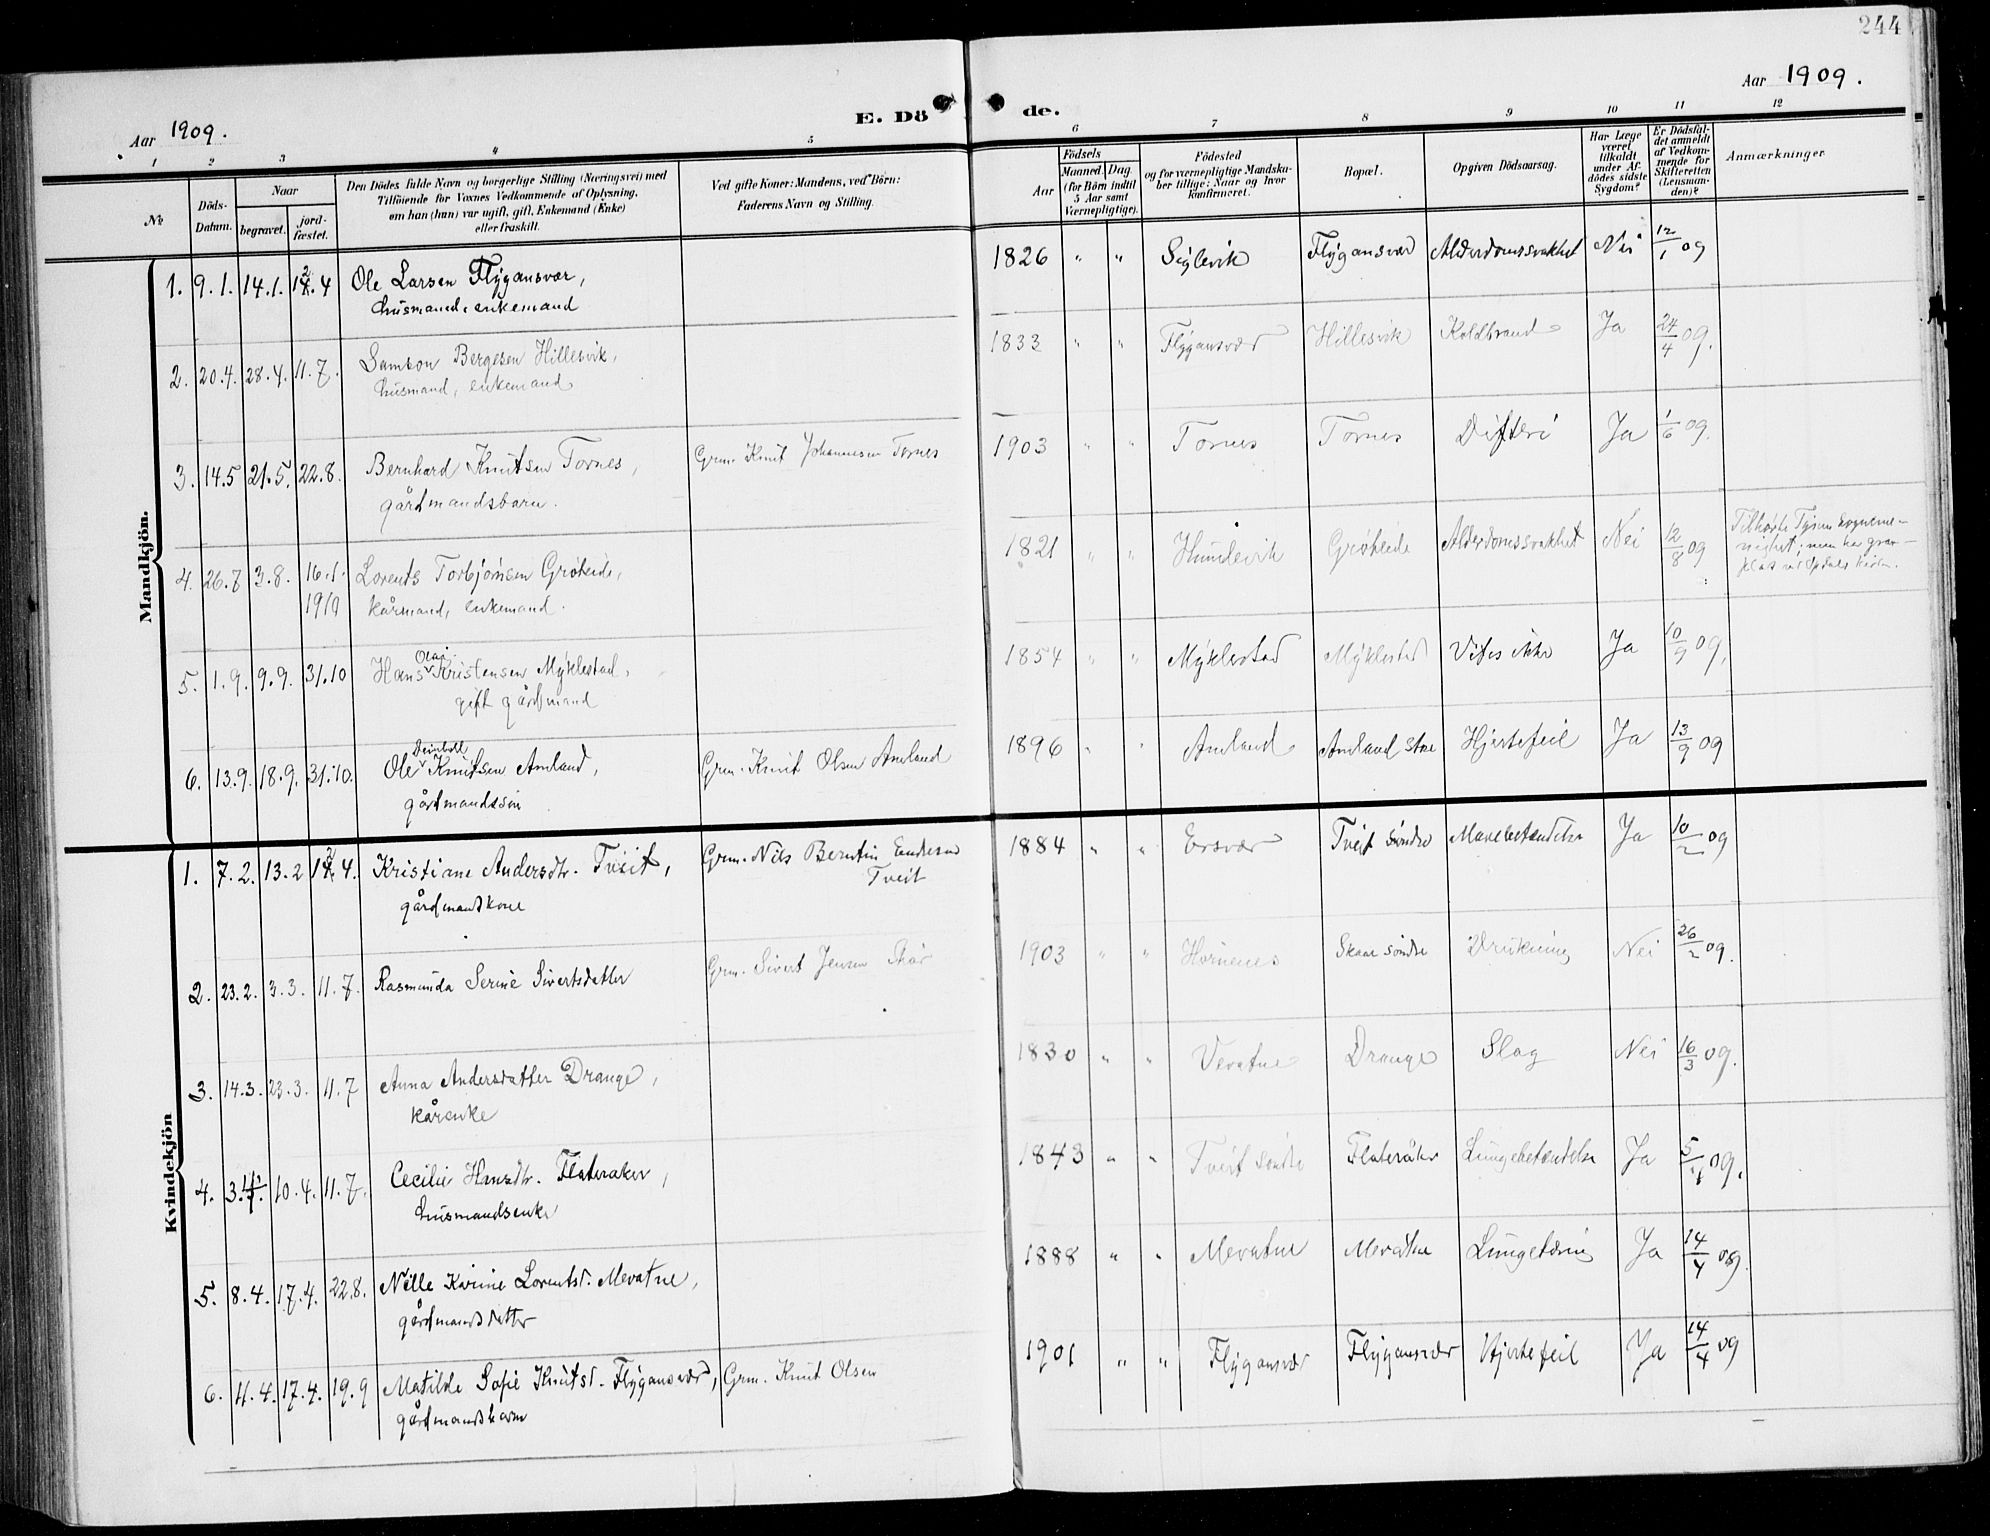 244
Aar 1909.
E. Dö de.
Aar 1909.
1 2 3 4 5 6 7 8 9 10 11 12
No
Döds-
Datum.
Naar
begravet.
jord-
fæstet.
Den Dödes fulde Navn og borgerlige Stilling (Næringsvei) med
Tilföiende for Voxnes Vedkommende af Oplysning,
om han (hun) var ugift, gift, Enkemand (Enke)
eller fraskilt.
Ved gifte Koner: Mandens, ved Börn:
Faderens Navn og Stilling.
Födsels
Aar
Maaned.
Dag.
(for Börn indtil
5 Aar samt
Værnepligtige).
Födested
og for værnepligtige Mandska-
ber tillige: Naar og hvor
konfirmeret.
Bopæl.
Opgiven Dödsaarsag.
Har Læge
været
tilkaldt
under Af-
dödes sidste
Sygdom?
Er Dödsfal-
det anmeldt
af Vedkom-
mende for
Skifteretten
(Lensman-
den)?
Anmærkninger
Mandkjön.
1. 9.1. 14.1. 12.4 Ole Larsen Flygansvær, 1826 " " Siglevik Flygansvær Alderdomssvakhet Nei 12/1 09
husmand, enkemand
2. 20.4. 28.4. 11.7. Samson Bergesen Hillesvik, 1833 " " Flygansvær Hillesvik Koldbrand Ja 24/4 09.
husmand, enkemand
3. 14.5 21.5. 22.8. Bernhard Knutsen Tornes, Grm. Knut Johannesen Tornes 1903 " " Tornes Tornes Difteri Ja 1/6 09.
gårdmandsbarn.
4. 26.7 3.8. 16.1. 1910 Lorents Torbjørnsen Grøteide, 1821 " " Hundevik Grøteide Alderdomssvakhet Nei 12/8 09
kårmand, enkemand.
Tilhørte Tysnes sogneme-
nighet; men har grav-
plas ved
5. 1.9. 9.9. 31.10 Hans Olai Kristensen Myklestad, 1854 " " Myklestad Myklestad Vites ikke Ja 10/9 09.
gift gårdmand
6. 13.9. 18.9. 31.10. Ole Knutsen Amland, Grm. Knut Olsen Amland 1896 " " Amland Amland stre Hjertefeil Ja 13/9 09
gårdmandssøn
Kvindekjön
1. 7.2. 13.2 12.4. Kristiane Andersdtr. Tveit, Grm. Nils Berntin Endresen 1884 " " Ersvær Tveit søndre Mavebetændelse Ja 10/2 09
Tveit
gårdmandskone
2. 23.2. 3.3. 11.7. Rasmunda Serine Sivertsdatter Grm. Sivert Jensen Skår 1903 " " Hornenes Skaar søndre Drukning Nei 26/2 09.
3. 14.3. 23.3. 11.7 Anna Andersdatter Drange, 1830 " " Vevatne Drange Slag Nei 16/3 09.
kårenke
4. 3.4. 10.4. 11.7. Cecilie Hansdtr. Flateraker, 1843 " " Tveit søndre Flateråker Lungebetændelse Ja 5/4 09.
husmandsenke
5. 8.4. 17.4. 22.8. Nille Karine Lorentsd. Mevatne, 1888 " " Mevatne Mevatne Lungetæring Ja 14/4 09.
gårdmandsdatter
6. 11.4. 17.4. 19.9 Matilde Sofie Knutsd. Flygansvær, Grm. Knut Olsen 1901 " " Flygansvær Flygansvær Hjertefeil Ja 14/4 09
gårdmandsbarn